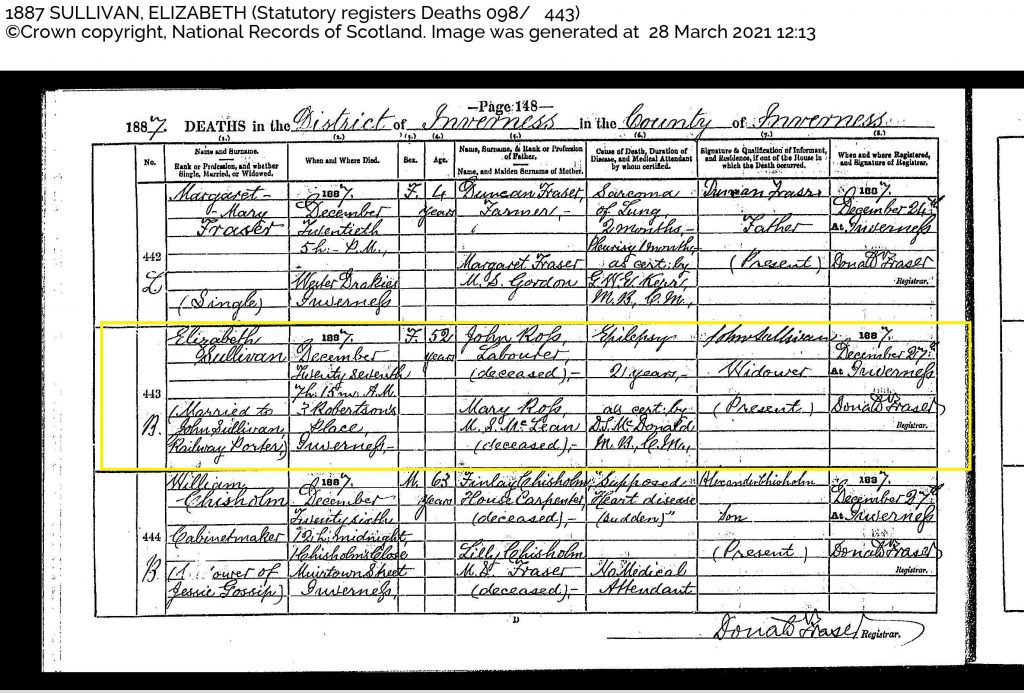 1887 SULLIVAN, ELIZABETH (Statutory registers Deaths 098/ 443)
©Crown copyright, National Records of Scotland. Image was generated at 28 March 2021 12:13
—Page 148—
1887. DEATHS in the District of Inverness in the County of Inverness
(1.) (2.) (3.) (4.) (5.) (6.) (7.) (8.)
No.
Name and Surname.
Rank or Profession, and whether
Single, Married, or Widowed.
When and Where Died.
Sex.
Age.
Name, Surname, & Rank or Profession
of Father.
Name, and Maiden Surname of Mother.
Cause of Death, Duration of
Disease, and Medical Attendant
by whom certified.
Signature & Qualification of Informant,
and Residence, if out of the House in
which the Death occurred.
When and where Registered,
and Signature of Registrar.
442
Margaret
Mary
Fraser
(Single)
1887.
December
Twentieth
5h. P.M.,
Wester Drakies
Inverness
F.
4
years
Duncan Fraser,
Farmer,
Margaret Fraser
M.S. Gordon
Sarcoma
of Lung,
2 months,
Pleurisy 1 month,
as cert. by
M.B., C.M.,
Duncan Fraser
Father
(Present)
1887.
December 24th
At Inverness
Donald Fraser
Registrar.
443
B.
Elizabeth
Sullivan
(Married to
John Sullivan,
Railway Porter)
1887.
December
Twenty seventh
7h. 15m. A.M.
3 Robertson's
Place,
Inverness,-
F.
52
years
John Ross,
Labourer,
(deceased),-
Mary Ross,
M.S. McLean
(deceased),-
Epilepsy
21 years,-
as cert. by
D.S. McDonald
M.B., C.M.,
John Sullivan
Widower
(Present)
1887.
December 27th
At Inverness
Donald Fraser
Registrar.
444
B
William
Chisholm
Cabinetmaker
ower of
Jessie Gossip)
1887.
December
Twenty sixth
12h. midnight,
Chisholm's Close
Muirtown Street
Inverness,
M.
63
years
Finlay Chisholm,
House Carpenter,
(deceased),-
Lilly Chisholm
M.S. Fraser
(deceased),-
"Supposed
Heart disease
(sudden)"
No Medical
Attendant
Alexander Chisholm
Son
(Present)
1887.
December 27th
At Inverness
Donald Fraser
Registrar.
D
Donald Fraser Registrar.